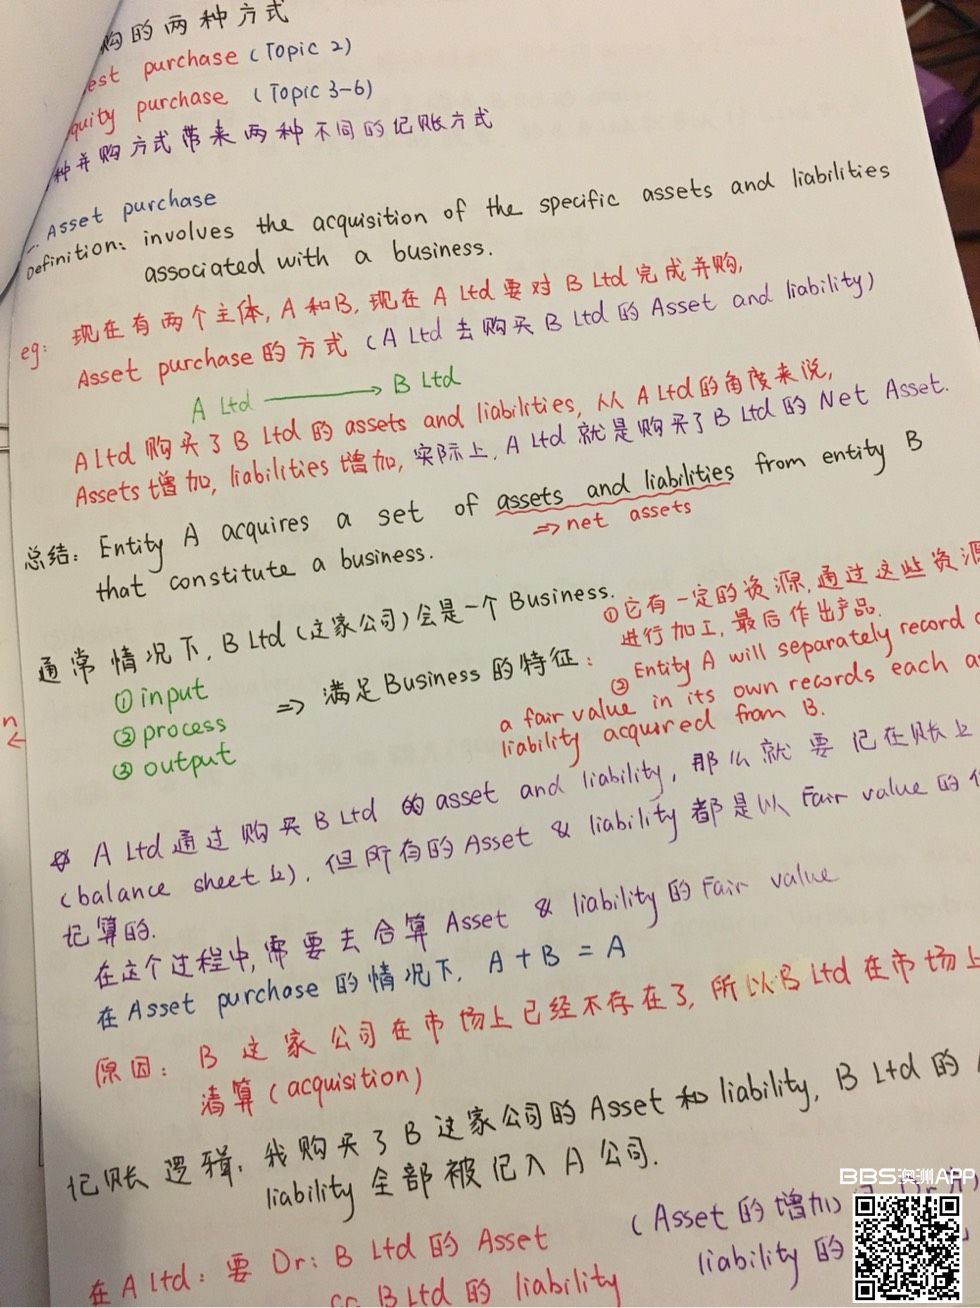 购的两种方式
est purchase (Topic 2)
quity purchase (Topic 3-6)
种并购方式带来两种不同的记账方式
Asset purchase
Definition: involves the acquisition of the specific assets and liabilities
associated with a business.
eg: 现在有两个主体, A和B, 现在 A Ltd 要对 B Ltd 完成并购,
Asset purchase的方式 (A Ltd 去购买 B Ltd 的 Asset and liability)
A Ltd → B Ltd
A Ltd 购买了 B Ltd 的 assets and liabilities, 从 A Ltd的角度来说,
Assets 增加, liabilities 增加, 实际上, A Ltd 就是购买了 B Ltd 的 Net Asset.
总结: Entity A acquires a set of assets and liabilities from entity B
⇒ net assets
that constitute a business.
通常情况下, B Ltd (这家公司) 会是一个 Business.
① input
② process
③ output
⇒ 满足Business的特征:
①它有一定的资源, 通过这些资源
进行加工, 最后作出产品.
② Entity A will separately record
a fair value in its own records each a
liability acquired from B.
n
←
A Ltd 通过购买 B Ltd 的 asset and liability, 那么就要记在账上
(balance sheet上), 但所有的Asset & liability 都是以 Fair value 的
记算的.
在这个过程中, 需要去合算 Asset & liability 的 Fair value
在 Asset purchase 的情况下, A + B = A
原因: B 这家公司在市场上已经不存在了, 所以B Ltd 在市场上
清算 (acquisition)
记账逻辑: 我购买了 B 这家公司的 Asset 和 liability, B Ltd 的
liability 全部被记入 A 公司.
在 A Ltd: 要 Dr: B Ltd 的 Asset (Asset 的增加)
B Ltd 的 liability liability 的
BBS澳洲APP